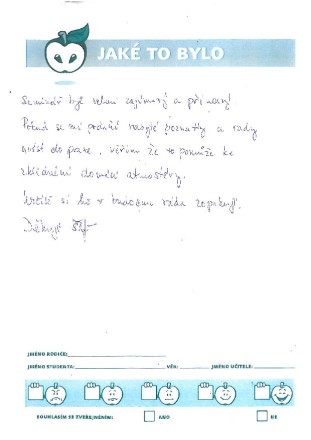 JAKÉ TO BYLO
Seminář byl velmi zajímavý a přínosný
Pokud se mi podaří nasyté poznatky a rady
uvést do praxe, věřím že to pomůže ke
zklidnění domácí atmosféry.
Určitě si ho v budoucnu ráda zopakuji.
Děkuji
JMÉNO RODIČE:
JMÉNO STUDENTA: VĚK: JMÉNO UČITELE:
SOUHLASÍM SE ZVEŘEJNĚNÍM: ANO NE